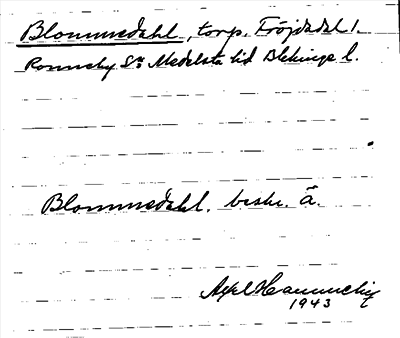 Blommedahl, torp, Fröjdadal 1.
Ronneby Sn Medelsta hd Blekinge l.
Blommedahl. beskr. å.
Axel
1943